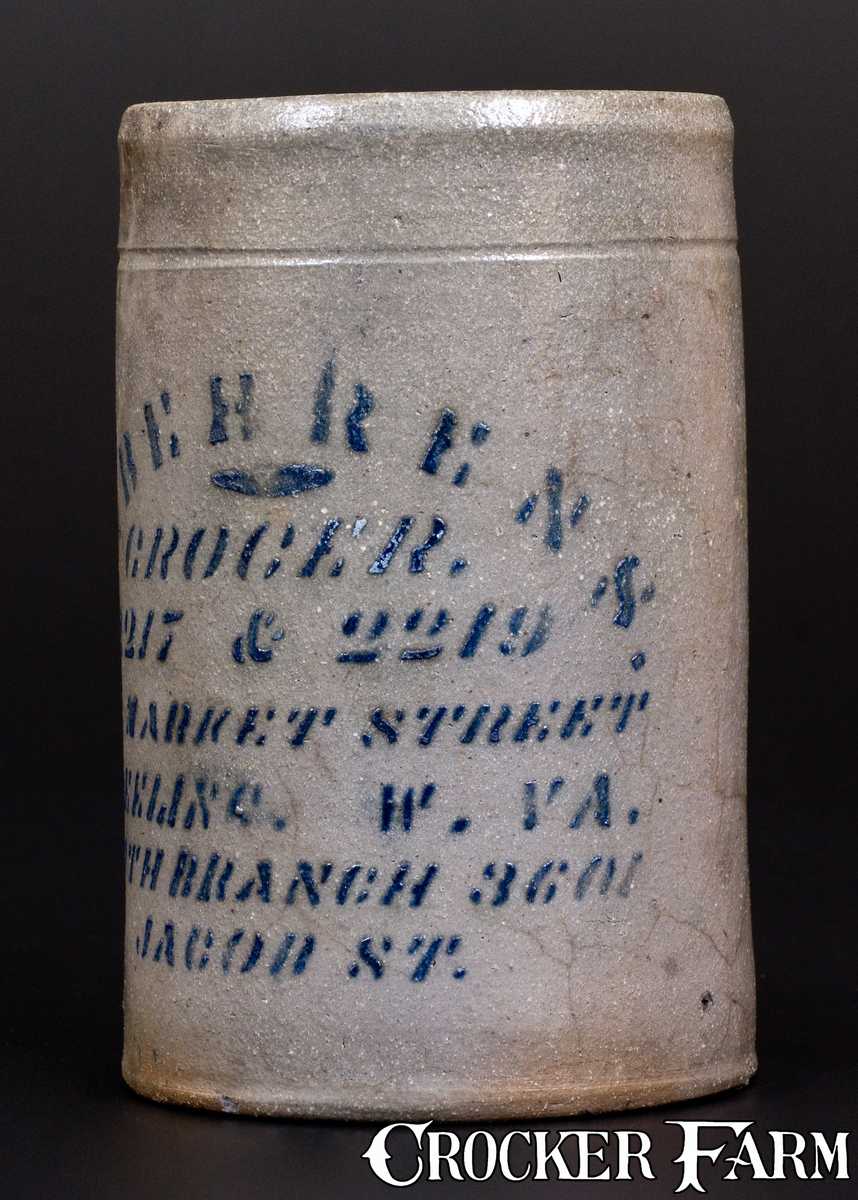 BEHRE
GROCER.
2217 & 2219
MARKET STREET
EELING. W. VA.
TH BRANCH 3601
JACOB ST.
CROCKER FARM